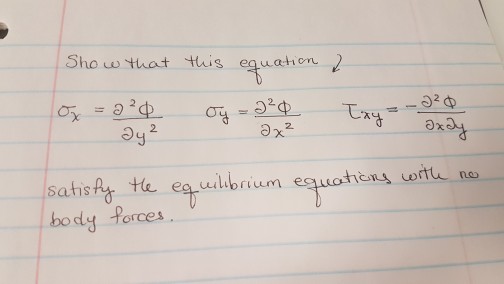 Show that this equation
σx = ∂²Φ/∂y² σy = ∂²Φ/∂x² τxy = -∂²Φ/∂x∂y
satisfy the equilibrium equations with no
body forces.